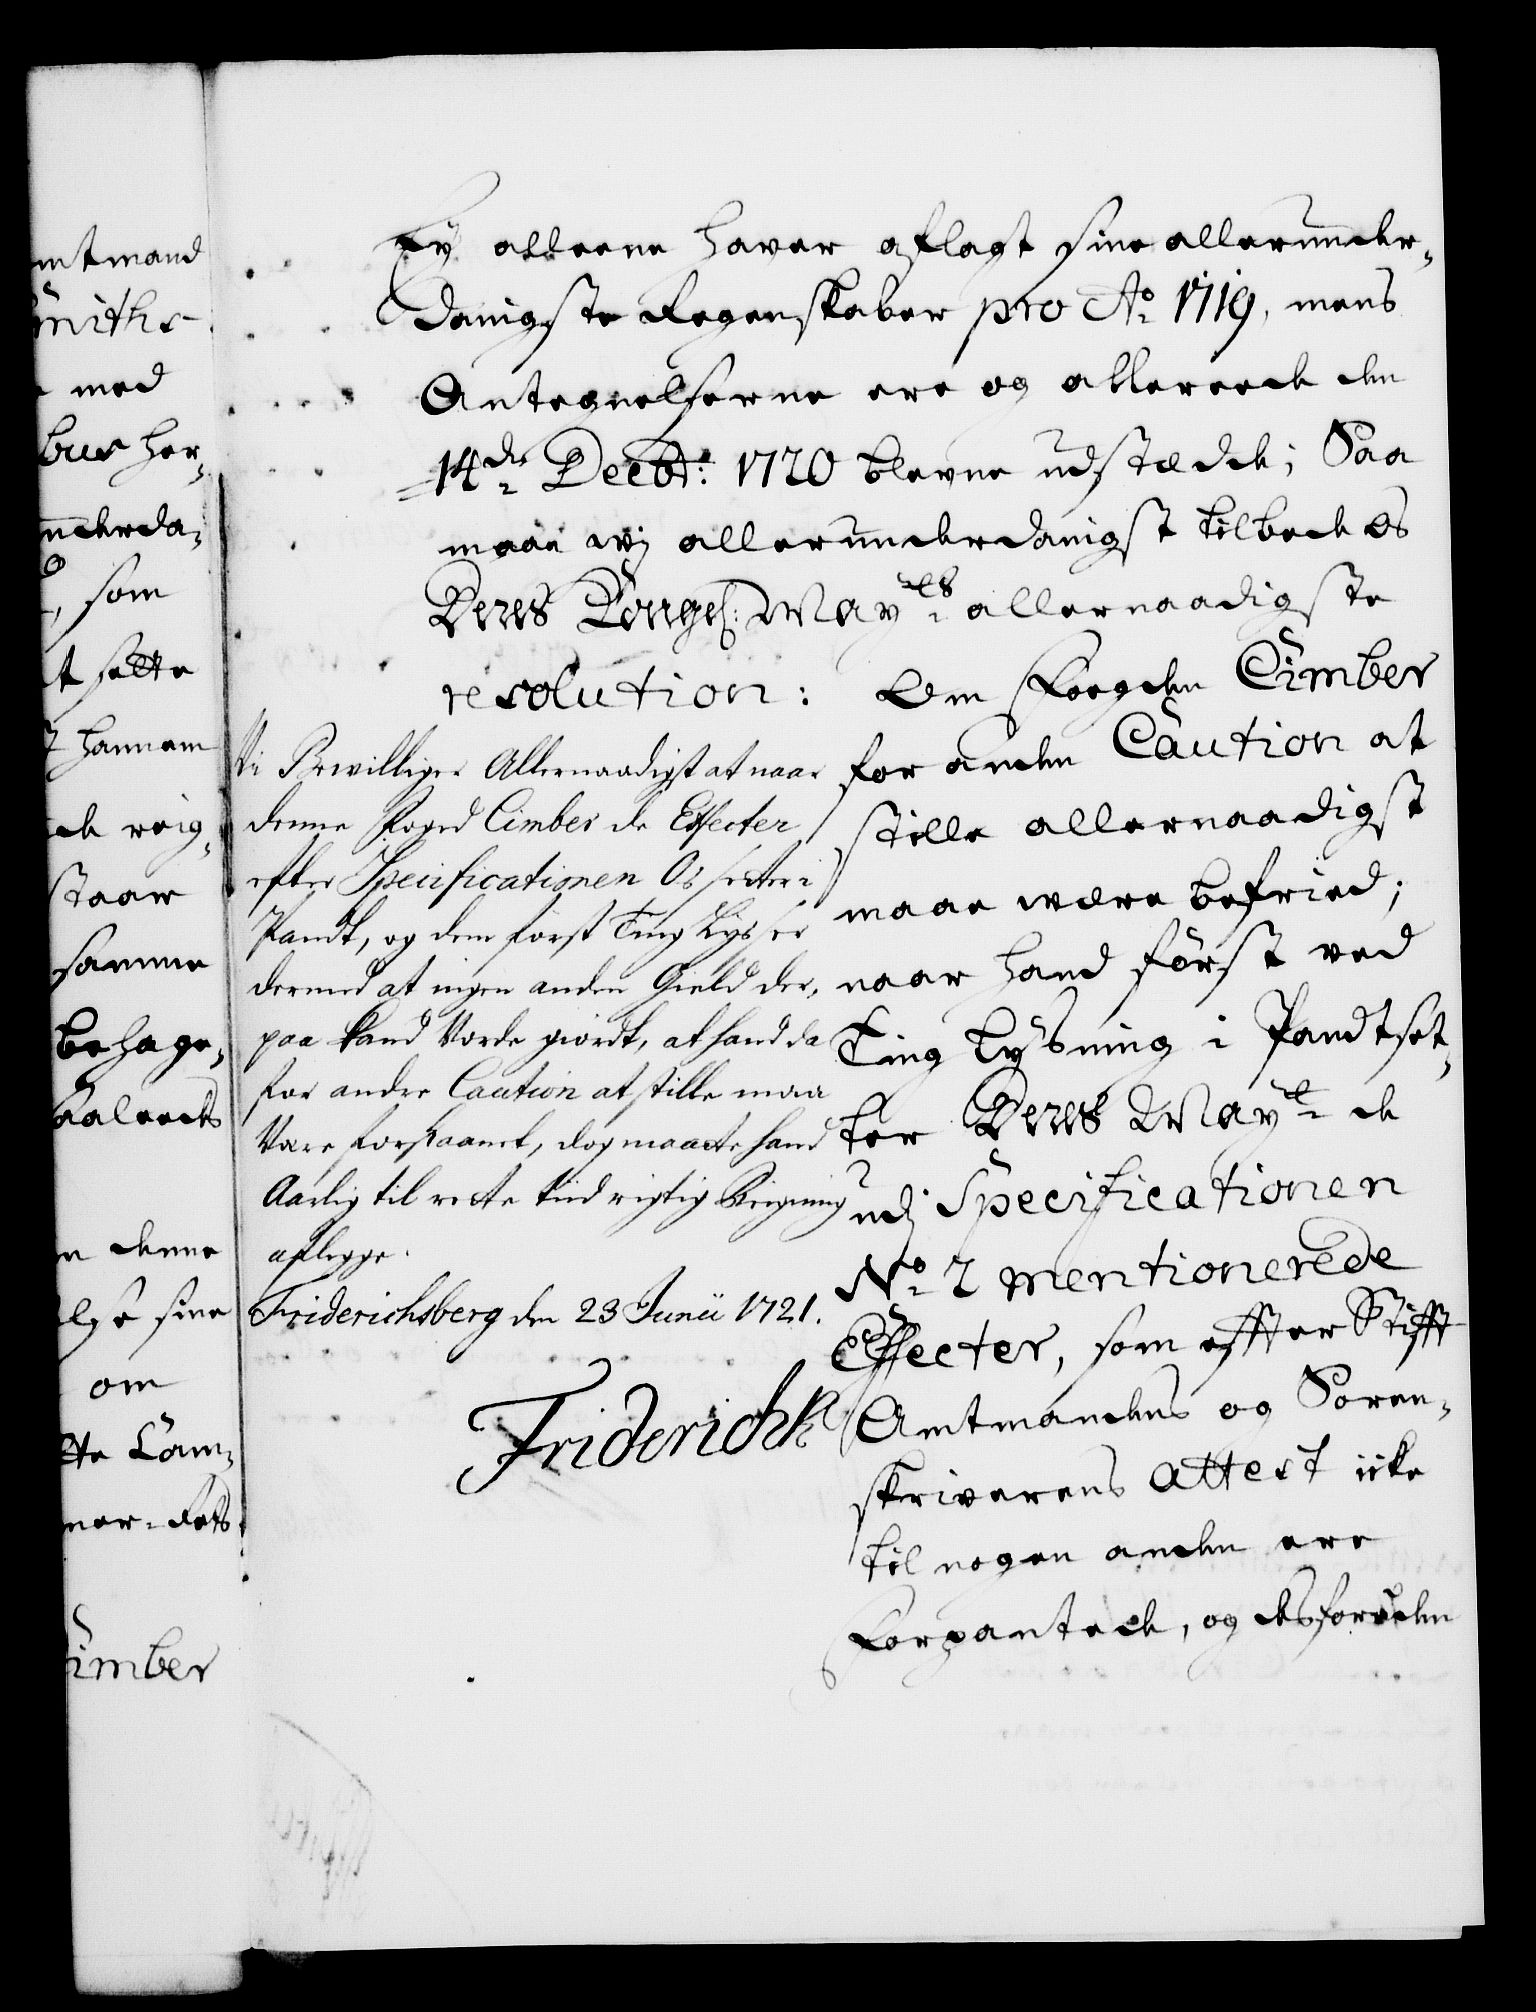 mtmand
miths
med
bus her-
nderda-
, som
t sætte
hannem
de rig-
staar
samme
behage-
aaleeds
n denne
else sine
om
tte Cam-
mer-Rets
imber
Ey alleene haver aflagt sine allerunder-
danigste Regenskaber pro Ao. 1719, mens
Antegnelserne ere og allereede den
14de Decbr: 1720 blevne udstædde; Saa
maae wj allerunderdanigst tilbede os
Deres Kongel: Mayts allernaadigste
resolution: Om Foegden Cimber
for anden Caution at
stille allernaadigst
maae være befried;
naar hand først ved
Ting Lysning i Pandtset-
ter Deres Mayt de
udj Specificationen
No. 2 mentionerede
Effecter, som effter Stifft
Amtmandens og Soren-
skriverens Attest icke
til nogen anden ere
Forpantede, og desforuden
Vi Bewilliger Allernaadigst at naar
denne Foged Cimber de Effecter
efter Specificationen Os setter i
Pandt, og dem først Ting Lyser
dermed at ingen anden Gield der-
paa kand Vorde giordt, at hand da
for andre Caution at stille maa
Være forskaanet, dog maaete hand
Aarlig til rette tiid rigtig Reigning
aflegge.
Friderichsberg den 23 Junii 1721.
Friderich R